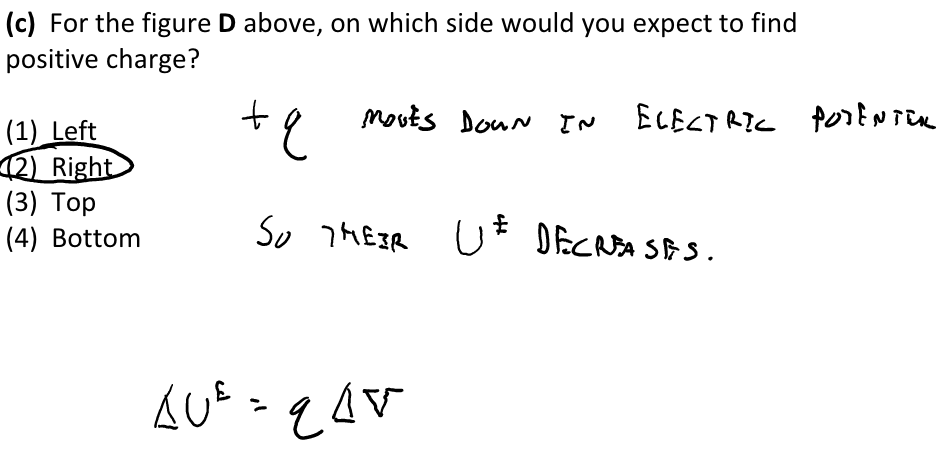 (c) For the figure D above, on which side would you expect to find
positive charge?
(1) Left
(2) Right
(3) Top
(4) Bottom
+q MOVES DOWN IN ELECTRIC POTENTIAL
SO THEIR U^E DECREASES.
ΔU^E = qΔV